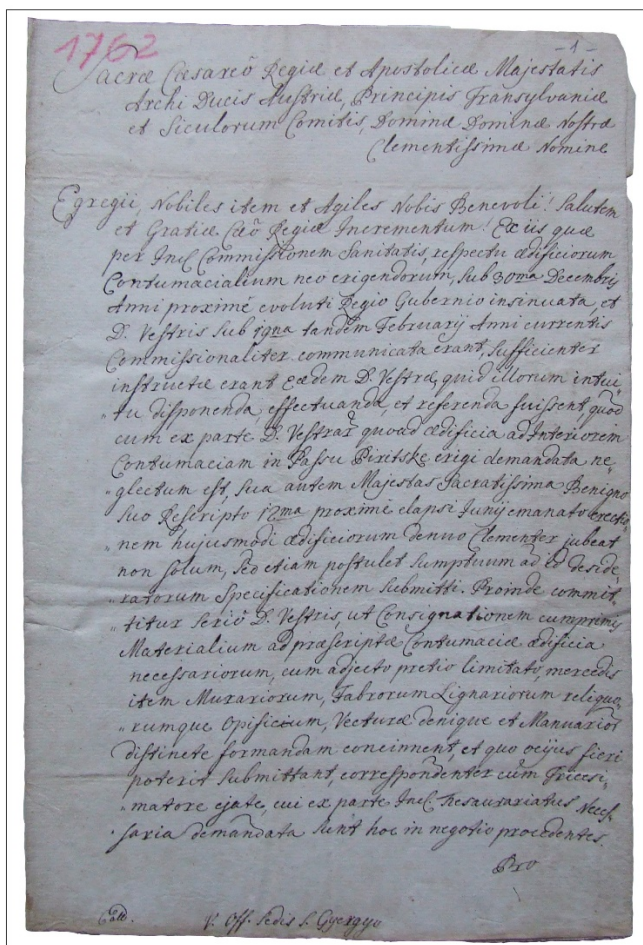 1762
- 1 -
Sacræ Cæsareõ Regiæ et Apostolicæ Majestatis
Archi Ducis Austriæ, Principis Transylvaniæ
et Siculorum Comitis, Dominæ Dominæ Nostræ
Clementissimæ Nomine
Egregii, Nobiles item et Agiles Nobis Benevoli! Salutem
et Gratiæ Cæõ Regiæ Incrementum! Ex iis quæ
per Incl. Commissionem Sanitatis, respectu ædificiorum
Contumacialium neo erigendorum, sub 30ma Decembris
Anni proximé evoluti Regio Gubernio insinuata, et
D. Vestris sub tandem February Anni currentis
Commissionaliter communicata erant, sufficienter
instructæ erant eædem D. Vestræ, quid illorum intui-
"tu disponenda, effectuanda, et referenda fuissent, quod
cum ex parte D. Vestrar quoad ædificia ad Interiorem
Contumaciam in Passu Piritske erigi demandata ne-
"glectum est, sua autem Majestas Sacratissima Benigno
suo Rescripto 12ma proximé elapsi Junij emanato erectio
"nem hujusmodi ædificiorum denuo Clementer jubeat
non solum, sed etiam postulet sumptuum ad id deside
"ratorum Specificationem submitti. Proinde commit-
"titur serio D. Vestris, ut Consignationem cumprimis
Materialium ad præscriptæ Contumaciæ ædificia
necessariorum, cum adjecto pretio limitato, mercedis
item Murariorum, Fabrorum Lignariorum reliquo-
"rumque Opificum, Vecturæ denique et Manuarior
distincte formandam concinnent, et quo ocijus fieri
poterit submittant, correspondenter cum Tricesi-
"matore ejate, cui ex parte Incl. Thesaurariatus Neces-
"saria demandata sunt hoc in negotio procedentes.
Pro
V. Off. Sedis S. Gyergyo